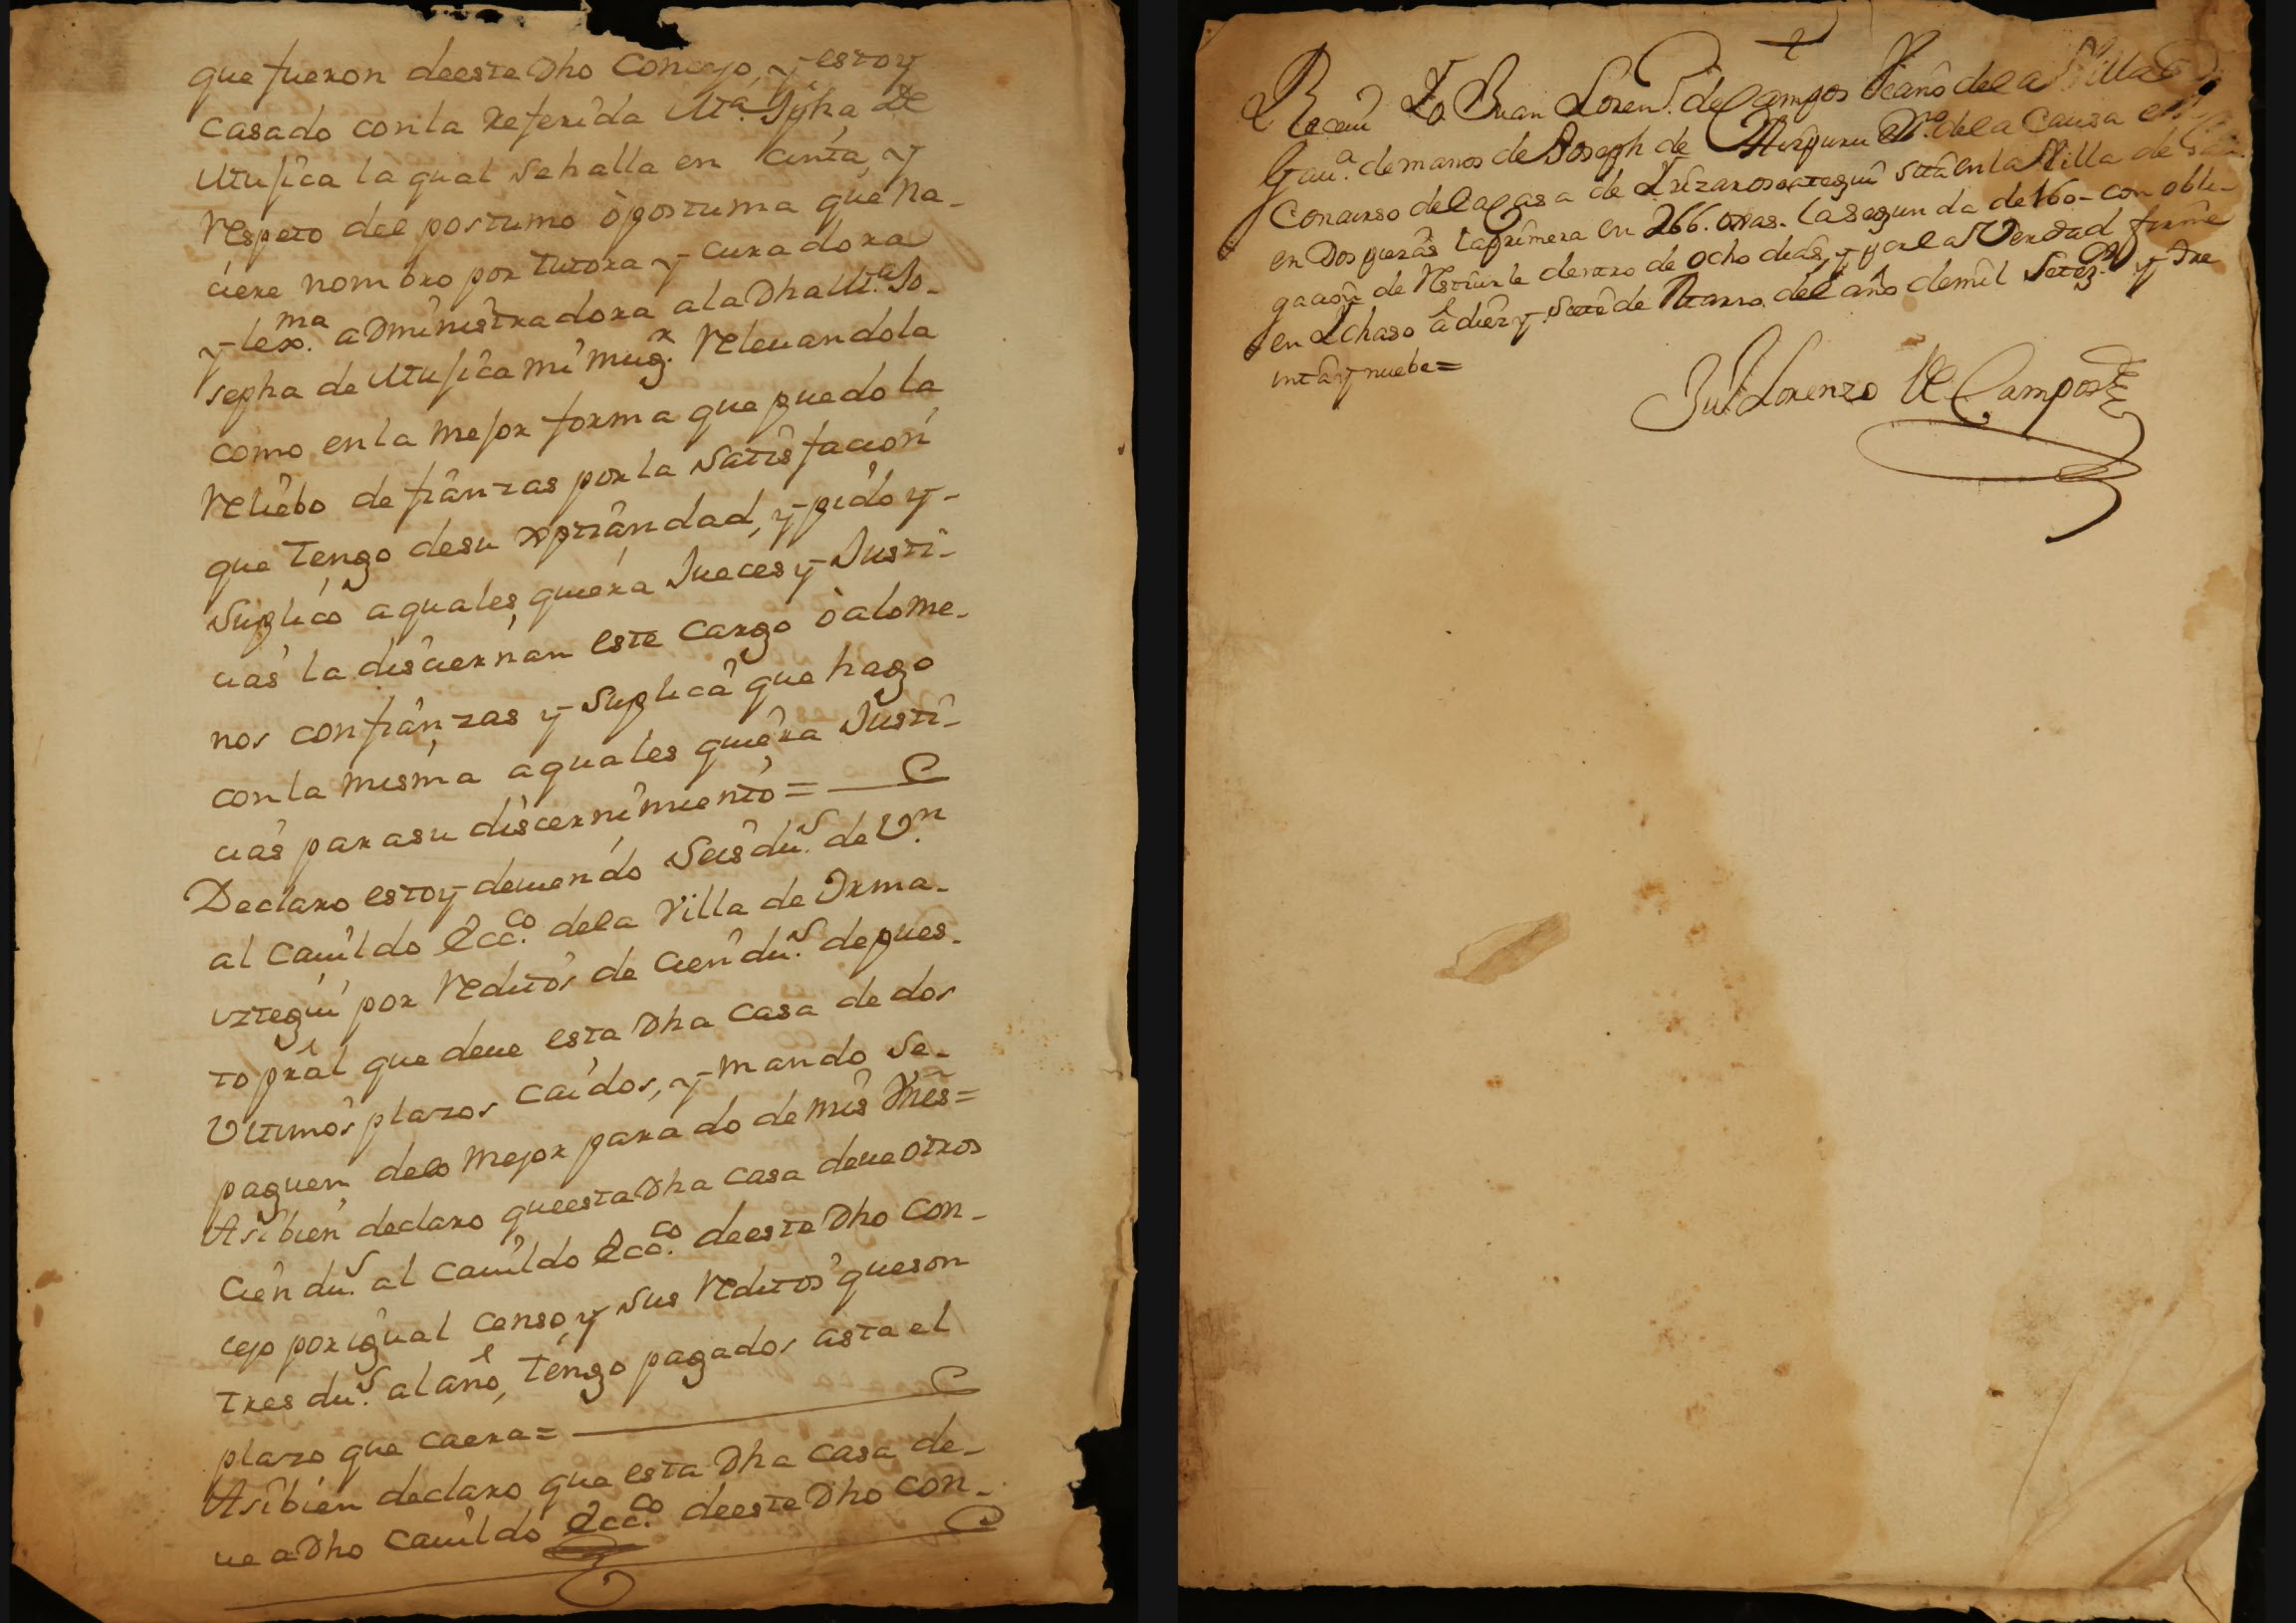 que fueron deeste Dho Concejo, y estoy
casado conla referida M.ª Jpha de
Mufica la qual se halla en cinta, y
respeto del postumo ò postuma que na-
ciere nombro por tutora y curadora
y lex.ma administradora ala Dha M.ª Jo-
sepha de Mufica mi mug.r relevandola
como en la mejor forma que puedo la
reliebo de fianzas por la satisfacion
que tengo desu xptiandad, y pido y-
suplico aqualesquiera Jueces y Justi-
cias la disciernan este cargo ò alome-
nos confianzas y suplica que hago
con la misma aqualesquiera Justi-
cias parasu discernimiento =
Declaro estoy deviendo seis du.s de V.n
al Cavildo Ecc.co dela Villa de Orma-
iztegui por reditos de cien du.s depues-
to pral que deve esta Dha casa de dos
ultimos plazos caidos, y mando se-
paguen delo mejor parado de mis vnes=
Asibien declaro queesta Dha casa deve otros
cien du.s al Cavildo Ecc.co deeste Dho con-
cejo por igual censo, y sus reditos queson
tres du.s al año, tengo pagados asta el
plazo que caera=
Asibien declaro que esta Dha casa de-
ve a Dho Cavildo Ecc.co deeste Dho con-
Receui Yo Juan Loren.o de Campos Vecano dela Villa de
Gav.ª de manos de Joseph de Aizpuru dela Causa
Concurso dela Casa de sita en la Villa de
en Dos piezas la primera en 266. oxas. la segunda de 160- con obli-
gacion de restituirle dentro de ocho dias, y por la Verdad firme
en Ichaso â diez y siete de Marzo del año demil setez.os y tre
inta y nuebe=
Ju.o Lorenzo de Campos